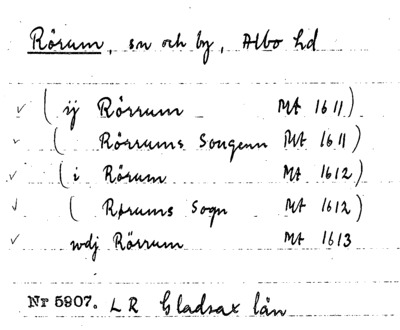 Rörum, sn och by, Albo hd
✓ (ij Rörrum Mt 1611)
✓ (Rörrums Sougenn Mt 1611)
✓ (i Rörum Mt 1612)
✓ (Rørums Sogn Mt 1612)
✓ wdj Rörrum Mt 1613
Nr 5907. LR Gladsax län